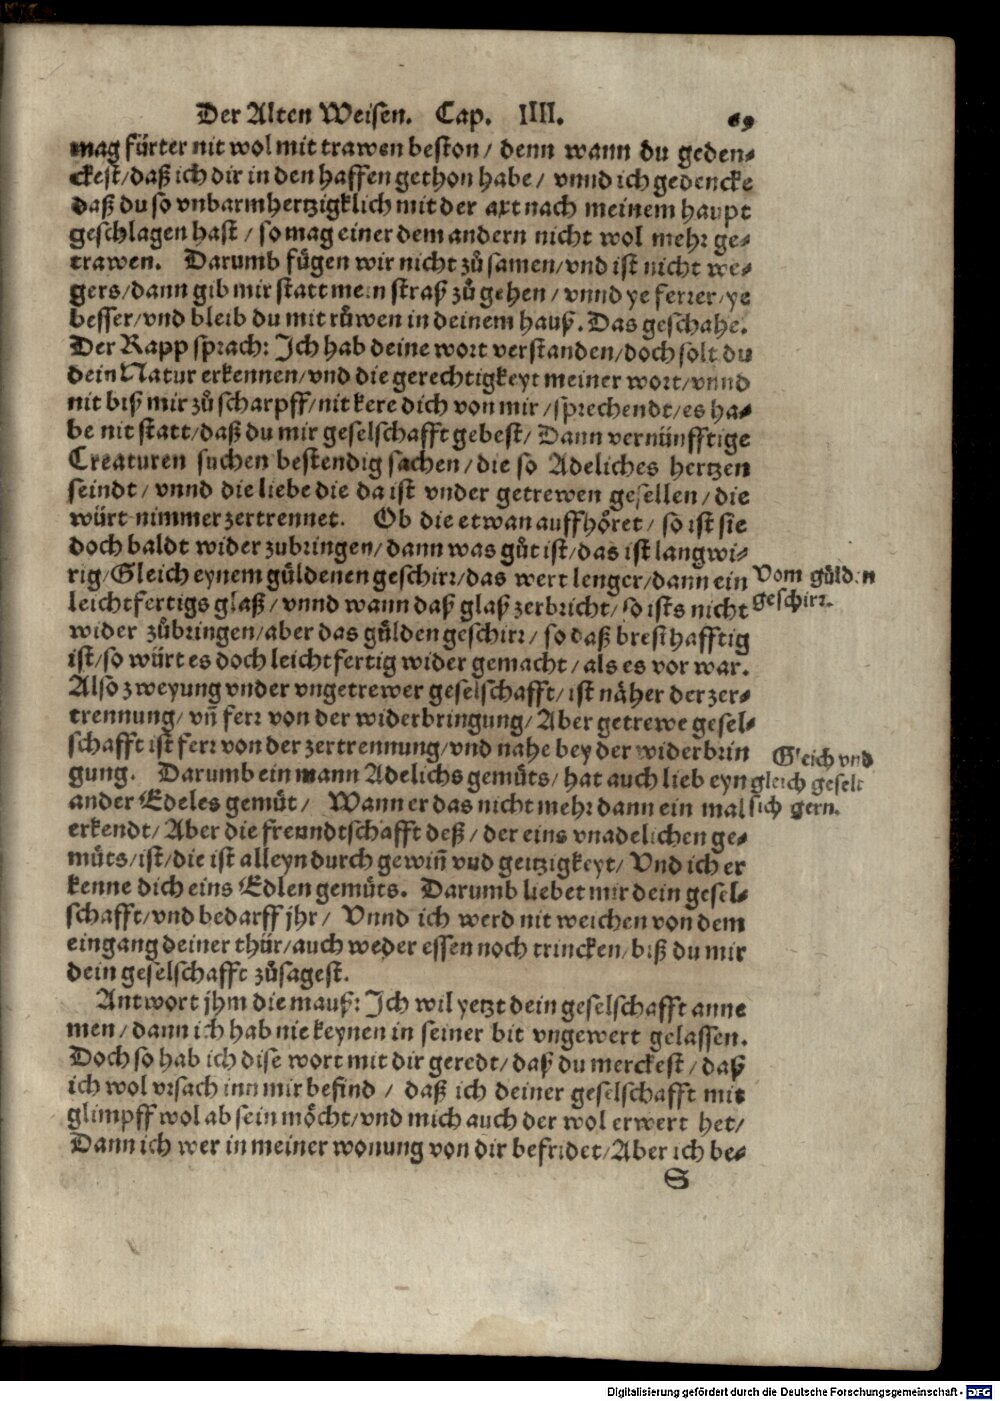 Der Alten Weisen. Cap. IIII. 69
mag fürter nit wol mit trawen beston / denn wann du geden⸗
ckest/daß ich dir in den haffen gethon habe / vnnd ich gedencke
daß du so vnbarmhertzigklich mit der axt nach meinem haupt
geschlagen hast / so mag einer dem andern nicht wol mehr ge⸗
trawen. Darumb fügen wir nicht zů samen/vnd ist nicht we⸗
gers/dann gib mir statt mein straß zů gehen / vnnd ye ferrer/ye
besser/vnd bleib du mit růwen in deinem hauß. Das geschahe.
Der Rapp sprach: Ich hab deine wort verstanden/doch solt du
dein Natur erkennen/vnd die gerechtigkeyt meiner wort/vnnd
nit biß mir zů scharpff/nit kere dich von mir /sprechendt/es ha⸗
be nit statt/daß du mir geselschafft gebest/ Dann vernünfftige
Creaturen suchen bestendig sachen/die so Adeliches hertzen
seindt / vnnd die liebe die da ist vnder getrewen gesellen/die
würt nimmer zertrennet. Ob die etwan auffhöret/ so ist sie
doch baldt wider zubringen/dann was gůt ist/das ist langwi⸗
rig/Gleich eynem güldenen geschirr/das wert lenger/dann ein
leichtfertigs glaß/ vnnd wann daß glaß zerbricht/so ists nicht
wider zůbringen/aber das gülden geschirr / so daß bresthafftig
ist/so würt es doch leichtfertig wider gemacht/als es vor war.
Also zweyung vnder vngetrewer geselschafft/ist näher der zer⸗
trennung/ vñ ferr von der widerbringung/Aber getrewe gesel⸗
schafft ist ferr von der zertrennung/vnd nahe bey der widerbrin
gung. Darumb ein mann Adelichs gemüts/hat auch lieb eyn
ander Edeles gemüt/ Wann er das nicht mehr dann ein mal
erkendt/Aber die freundtschafft deß/der eins vnadelichen ge⸗
müts/ist/die ist alleyn durch gewiñ vnd geitzigkeyt/ Vnd ich er
kenne dich eins Edlen gemüts. Darumb liebet mir dein gesel⸗
schafft/vnd bedarff jhr/ Vnnd ich werd nit weichen von dem
eingang deiner thür/auch weder essen noch trincken/biß du mir
dein geselschafft zůsagest.
Antwort jhm die mauß: Ich wil yetzt dein geselschafft anne
men/dann ich hab nie keynen in seiner bit vngewert gelassen.
Doch so hab ich dise wort mit dir geredt/daß du merckest/daß
ich wol vrsach inn mir befind / daß ich deiner geselschafft mit
glimpff wol ab sein möcht/vnd mich auch der wol erwert het/
Dann ich wer in meiner wonung von dir befridet/Aber ich be⸗
S
Vom gülden
geschirr.
Gleich vnd
gleich geselt
sich gern.
Digitalisierung gefördert durch die Deutsche Forschungsgemeinschaft - DFG